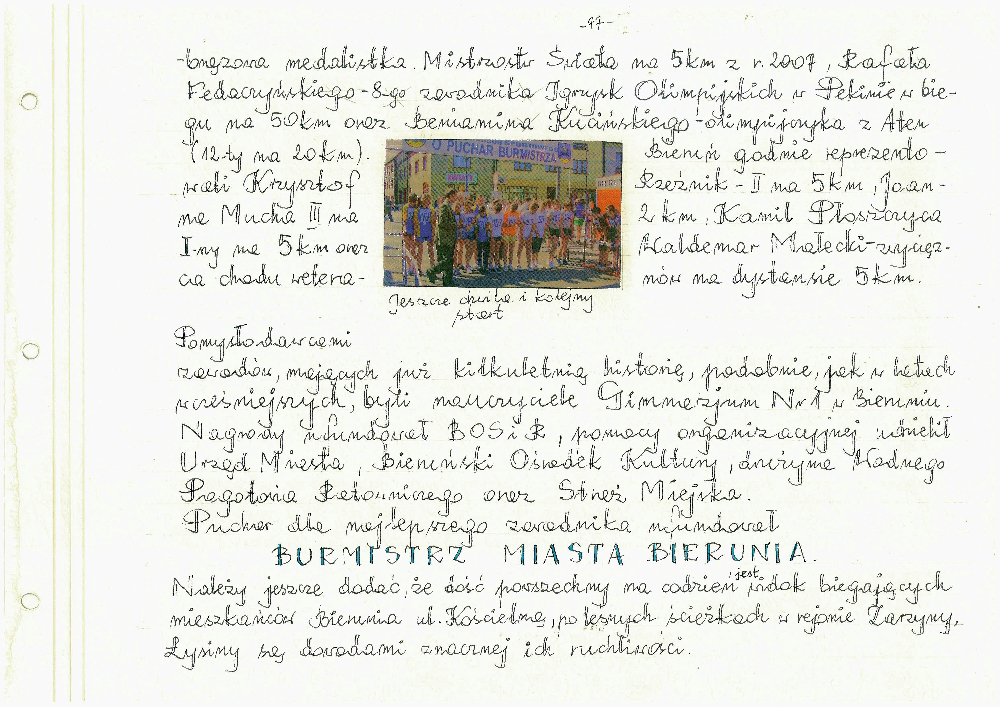 -97-
-brązowa medalistka Mistrzostw Świata na 5km z r. 2007, Rafała
Fedaczyńskiego - 8-go zawodnika Igrzysk Olimpijskich w Pekinie w bie-
gu na 50km oraz Beniamina Kucińskiego - olimpijczyka z Aten
(12-ty na 20km). Bieruń godnie reprezento-
wali Krzysztof Rzeźnik - II na 5km, Joan-
na Mucha III na 2km, Kamil Płoszczyca
I-ny na 5km oraz Waldemar Małecki - zwycięz-
ca chodu wetera- nów na dystansie 5km.
O PUCHAR BURMISTRZA
Jeszcze chwila i kolejny
start
Pomysłodawcami
zawodów, mających już kilkuletnią historię, podobnie, jak w latach
wcześniejszych, byli nauczyciele Gimnazjum Nr 1 w Bieruniu.
Nagrody ufundował BOSiR, pomocy organizacyjnej udzielił
Urząd Miasta, Bieruński Ośrodek Kultury, drużyna Wodnego
Pogotowia Ratowniczego oraz Straż Miejska.
Puchar dla najlepszego zawodnika ufundował
BURMISTRZ MIASTA BIERUNIA.
Należy jeszcze dodać, że dość powszechny na codzień jest widok biegających
mieszkańców Bierunia ul. Kościelną, po leśnych ścieżkach w rejonie Zarzyny,
Łysiny są dowodami znacznej ich ruchliwości.